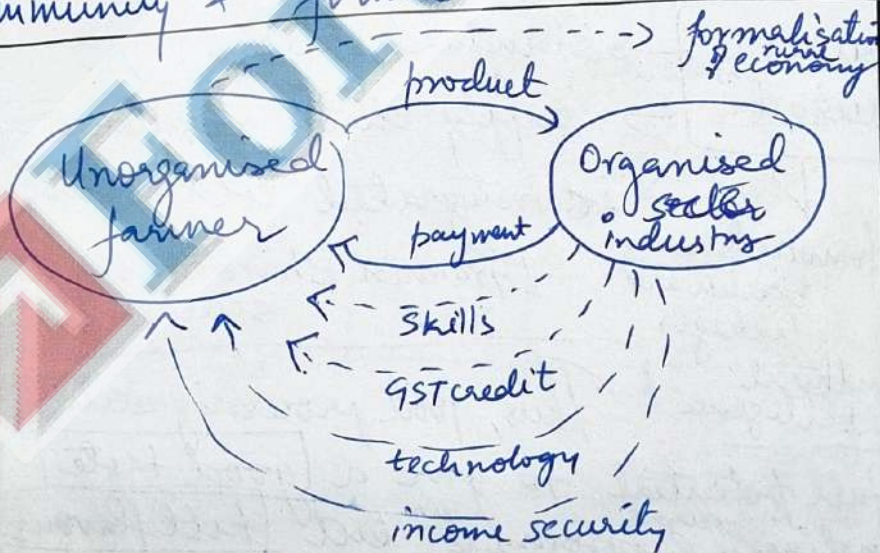 formalisation
of rural
economy
product
Unorganised
farmer
Organised
sector
industry
payment
skills
GST credit
technology
income security